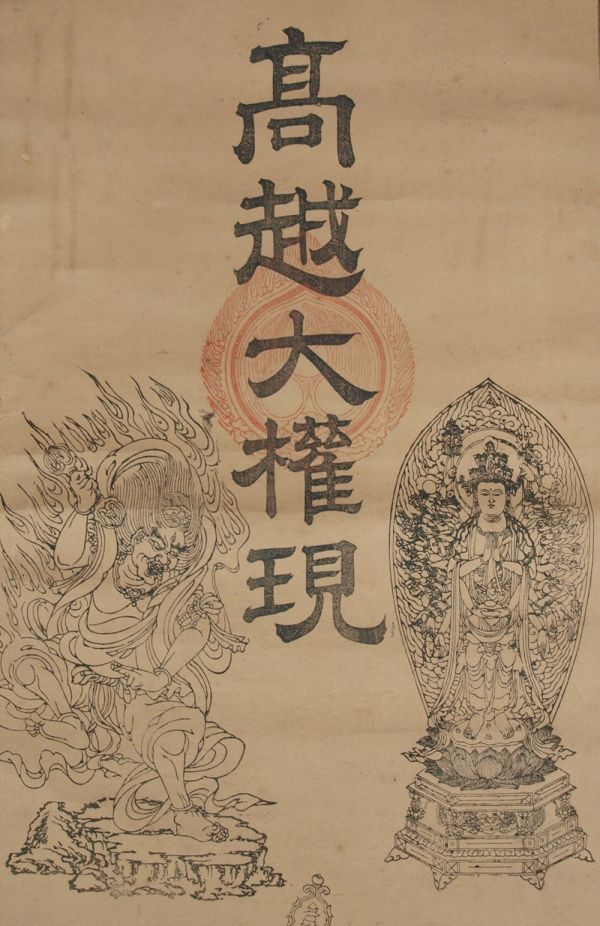 髙越大權現